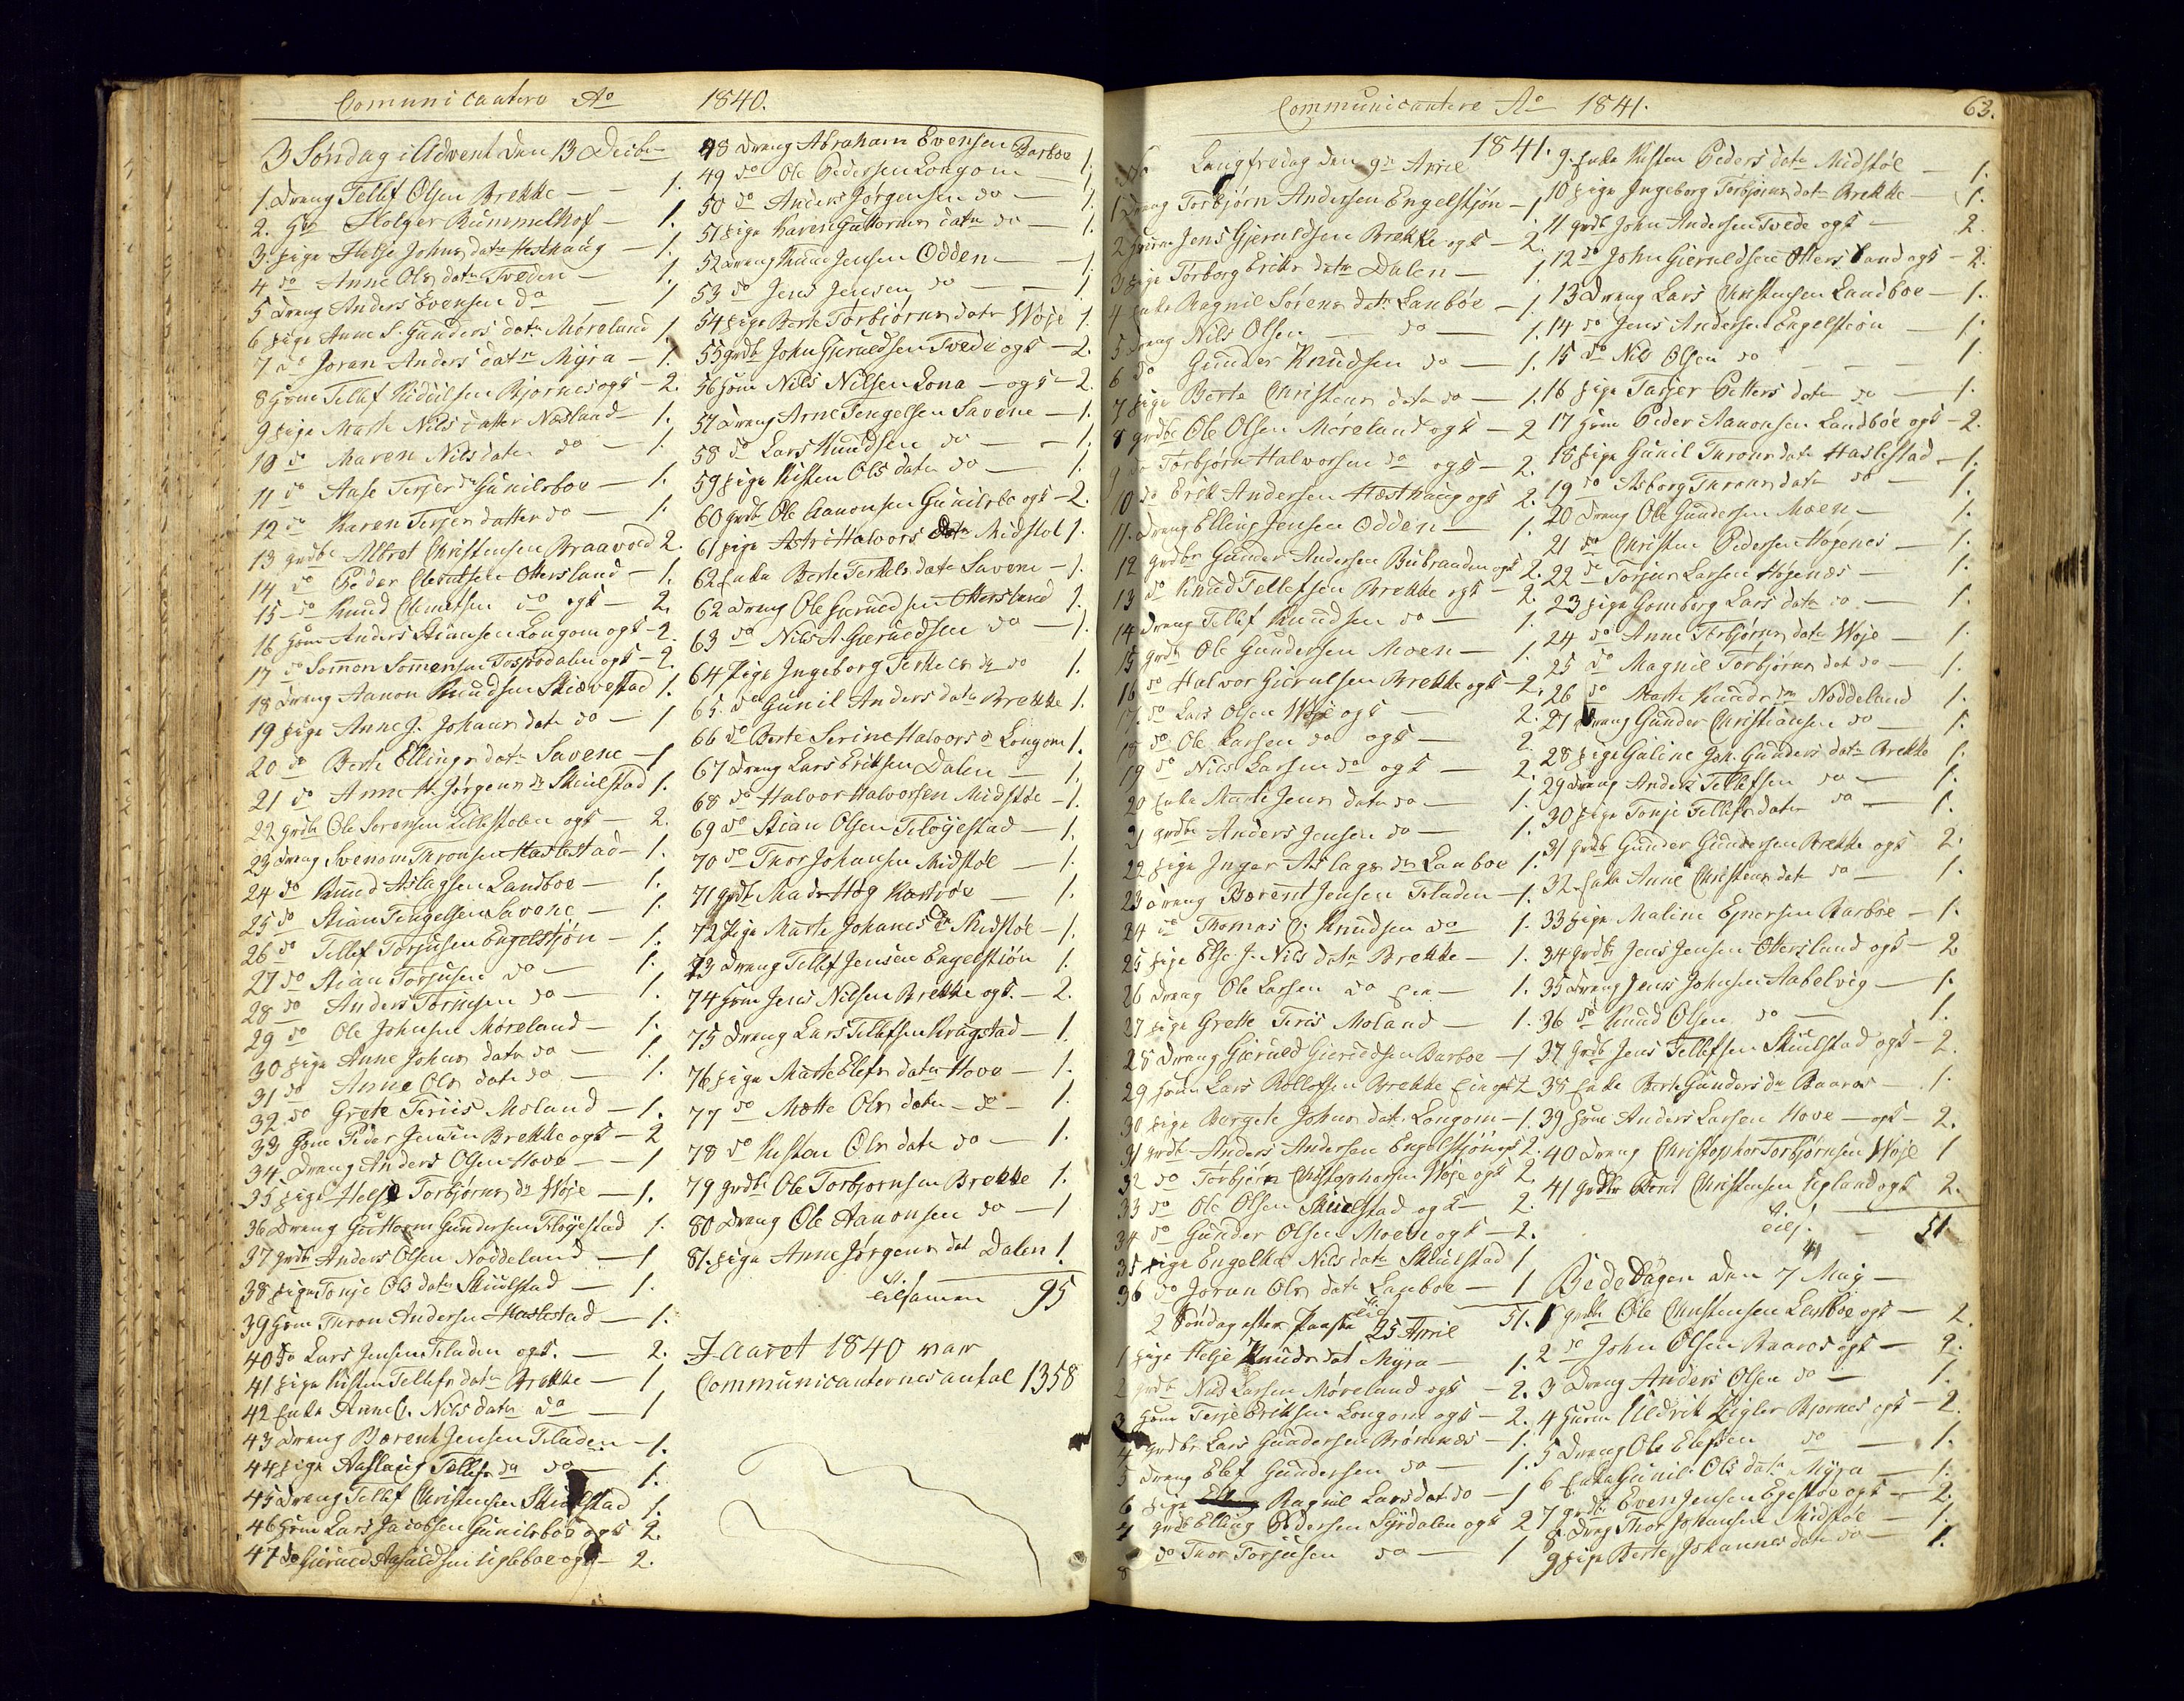 Comunicantere Ao 1840.
3 Søndag i Advent den 13 Decbr
1. Dreng Tellef Olsen Brekke — 1.
2. Hr Holger Rummelhof — 1.
3. pige Helje Johns datr Hesthaug — 1.
4 do Anne Ols datr Tveden — 1
5 Dreng Anders Evensen do — 1
6 pige Anne S. Gunders datr Møreland 1.
7 do Joran Anders datr Myra — 1.
8 Huusm Tellef Kiddilsen Bjornes ogk — 2.
9 pige Marte Nils datter Nedland 1.
10 do Maren Nils datr do — 1.
11 do Aase Terjes dr Gunilsboe — 1.
12 do Karen Terjes datter do — 1.
13 grdbr Altrot Christensen Braavold 2.
14 do Peder Clemetsen Ottersland — 1.
15 do Knud Clemetsen do ogk — 2.
16 Huusm Anders Stiansen Longom ogk — 2.
17 do Somon Somonsen ogk — 2.
18 Dreng Aanon Knudsen Skiævestad 1.
19 pige Anne J. Johans datr do — 1
20 do Berte Ellings datr Savene — 1
21 do Anne M. Jørgens dr Skiulstad 1.
22 grdbr Ole Sørensen Lillestølen ogk — 2.
23 Dreng Svenom Thronsen Haslestad — 1.
24 do Knud Aslagsen Landboe — 1.
25 do Stian Tengelsen Savene — 1.
26 do Tellef Torjusen Engelstjøn — 1.
27 do Stian Torjusen do — 1.
28 do Anders Torjusen do — 1.
29 do Ole Johnsen Møreland — 1.
30 pige Anne Johns datr do — 1.
31 do Anne Ols datr do — 1.
32 do Grete Firiis Moland — 1.
33 Huusm Peder Jensen Brekke ogk — 2
34 Dreng Anders Olsen Hove — 1
35 pige Helje Torbjørns dr Woje — 1.
36 Dreng Guttorm Gundersen Fløyestad 1.
37 grdbr Anders Olsen Noddeland — 1
38 pige Tonje Ols datr Skiulstad — 1.
39 Huusm Thron Andersen Haslestad — 1.
40 do Lars Jensen Fladen ogk. — 2.
41 pige Kisten Tellefs datr Brekke — 1
42 Enke Anne C. Nils datr do — 1
43 Dreng Bærent Jensen Fladen — 1.
44 pige Aaslaug Tellefs dr do — 1.
45 Dreng Tellef Christensen Skiulstad 1.
46 Huusm Lars Jacobsen Gunilsboe ogk 2.
47 do Gieruld Aasuldsen ogk — 2.
48 Dreng Abraham Evensen Barboe 1.
49 do Ole Pedersen Longom — 1.
50 do Anders Jørgensen do — 1.
51 pige Karen Guttorms datr do — 1.
52 Dreng Knud Jensen Odden — 1.
53 do Jens Jensen do — 1
54 pige Berte Torbiørns datr Woje 1.
55 grdbr John Gjeruldsen Tvede ogk — 2.
56 Huusm Nils Nilsen Lona — ogk — 2.
57 Dreng Arne Tengelsen Savene — 1.
58 do Lars Knudsen do — 1.
59 pige Kisten Ols datr do — 1.
60 grdbr Ole Aanonsen Gunilsbo ogk — 2.
61 pige Astri Halvors datr Midstøl 1.
62 Enke Berte Terkels datr Savene — 1.
62 Dreng Ole Gieruldsen Ottersland 1.
63 do Nils A. Gieruldsen do — 1.
64 Pige Ingeborg Terkels dr do 1.
65. do Gunil Anders datr Brekke 1.
66 do Berte Serine Halvors d Longom 1.
67 Dreng Lars Eriksen Dalen — 1.
68 do Halvor Halvorsen Midstøe — 1.
69 do Stian Olsen Fløyestad — 1.
70 do Thor Johansen Midstøl — 1.
71 grdbr Mads Høg — 1.
72 Pige Marte Johanes dr Midstøl — 1.
73 Dreng Tellef Jensen Engelstiøn 1.
74 Huusm Jens Nilsen Brekke ogk. — 2.
75 Dreng Lars Tellefsen Kragstad — 1.
76 pige Marte Elefs datr Hove — 1.
77 do Mette Ols datr — do — 1.
78 do Kisten Ols datr do — 1.
79 grdbr Ole Torbjornsen Brekke 1.
80 Dreng Ole Aanonsen do — 1
81. pige Anne Jørgens dat Dalen 1.
tilsamen 95
I aaret 1840 var
Communicanternes antal 1358
Communicantere Ao 1841.
63.
1841.
Langfredag den 9de April
1 Dreng Torbjørn Andersen Engelstjøn — 1
2 Huusm Jens Gjeruldsen Brekke ogk — 2.
3 pige Torborg Eriks datr Dalen — 1.
4 Enke Ragnil Sørens datr Lanbøe — 1.
5 Dreng Nils Olsen do — 1.
6 do Gunder Knudsen do — 1.
7 pige Berte Christens datr do — 1.
8 grdbr Ole Olsen Møreland ogk — 2
9 do Torbjørn Halvorsen do ogk — 2.
10 do Erik Andersen Hæsthaug ogk 2.
11. Dreng Elling Jensen Odden — 1.
12 grdbr Gunder Andersen ogk 2.
13 do Knud Tellefsen Brekke ogk — 2.
14 Dreng Tellef Knudsen do — 1.
15 grdbr Ole Gundersen Moen — 1.
16 do Halvor Gierulsen Brekke ogk — 2.
17. do Lars Olsen Woje ogk — 2.
18 do Ole Larsen do ogk — 2.
19 do Nils Larsen do ogk — 2.
20 Enke Marte Jens datr do — 1.
21 grdbr Anders Jensen do — 1.
22 pige Inger Aslags dr Lanboe 1.
23 Dreng Bærent Jensen Fladen — 1.
24 do Thomas C. Knudsen do 1.
25 pige Else J. Nils datr Brekke — 1.
26 Dreng Ole Larsen do — 1.
27 pige Grette Firis Moland — 1.
28 Dreng Gieruld Gieruldsen Barboe — 1
29 Huusm Lars Rolloffsen Brekke ogk 2
30 pige Bergete Johns dat. Longom — 1.
31 grdbr Anders Andersen Engelstjøn ogk 2.
32 do Torbjørn Christophersen Woje ogk 2.
33 do Ole Olsen Skiulstad ogk — 2.
34 do Gunder Olsen Moen ogk — 2.
35 pige Engelke Nils datr Skiulstad 1
36 do Joran Ols datr Lanboe — 1
51.
2 Søndag efter Paaske 25 April
1 pige Helje Knuds dat Myra — 1.
2 grdbr Nils Larsen Møreland ogk — 2.
3 Huusm Terje Eriksen Longom ogk — 2.
4 grdbr Lars Gundersen Brømnæs — 1.
5 Dreng Elef Gundersen do — 1.
6 pige Ragnil Lars dat do — 1
7 grdbr Elling Pedersen Syrdalen ogk 2
8 do Thor Torjusen do — 1
9. Enke Kisten Peders datr Midstøl — 1.
10 pige Ingeborg Torbjørns datr Brekke 1.
11 grdbr John Andersen Tvede ogk — 2.
12 do John Gieruldsen Ottersland ogk — 2.
13 Dreng Lars Christensen Landboe — 1.
14 do Jens Andersen Engelstion — 1.
15 do Nils Olsen do — 1.
16 pige Tarjer Petters datr do — 1.
17 Huusm Peder Aanonsen Landbøe ogk — 2.
18 pige Gunil Throns datr Haslestad — 1.
19 do Asberg Throns datr do — 1.
20 Dreng Ole Gundersen Moen — 1.
21 do Christen Pedersen Høgenes — 1.
22 do Torjus Larsen Høgenæs — 1.
23 pige Gomborg Lars datr do — 1.
24 do Anne Torbjørns datr Woje — 1.
25 do Magnil Torbjørns dat do — 1.
26 do Marte Knuds dr Noddeland 1.
27 Dreng Gunder Christiansen do — 1.
28 pige Galine Joh. Gunders datr Brekke 1.
29 Dreng Anders Tellefsen do — 1.
30 pige Tonje Tellefs datr do — 1.
31 grdbr Gunder Gundersen Brekke ogk 2.
32. Enke Anne Christens dat do — 1.
33 pige Maline Ejnersen Barbøe — 1.
34 grdbr Jens Jensen Ottersland ogk — 2
35 Dreng Jens Johnsen Aabelvig — 1.
36 do Knud Olsen do — 1.
37 grdbr Jens Tellefsen Skiulstad ogk — 2.
38 Enke Berte Gunders dr Baaros 1.
39 Huusm Anders Larsen Hove — ogk — 2.
40 Dreng Christopher Torbjørnsen Woje 1
41 grdbr Bent Christensen Ugland ogk 2.
tils. — 51
Bede Dagen den 7 Maj —
1 grdbr Ole Christensen Lanboe ogk — 2.
2 do John Olsen Baaros ogk — 2.
3 Dreng Anders Olsen do — 1.
4 Huusm Uldrik Zigler Bjornes ogk — 2.
5 Dreng Ole Elefsen do — 1.
6 Enke Gunil Ols datr Myra — 1.
7 grdbr Even Jensen ogk — 2.
8. Dreng Thor Johansen Midstøl — 1.
9 pige Berte Johannes datr do — 1.